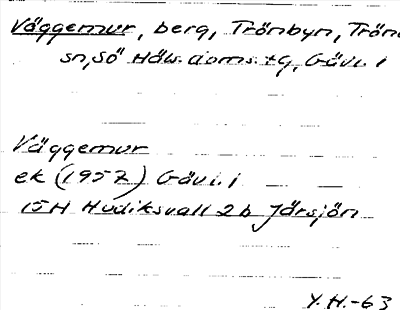 Väggemur, berg, Trönbyn, Trönö
sn, Sö Häls. doms. tg, Gävl. l
Väggemur
ek (1957) Gävl. l
15H Hudiksvall 2b Järsjön
Y.H.-63